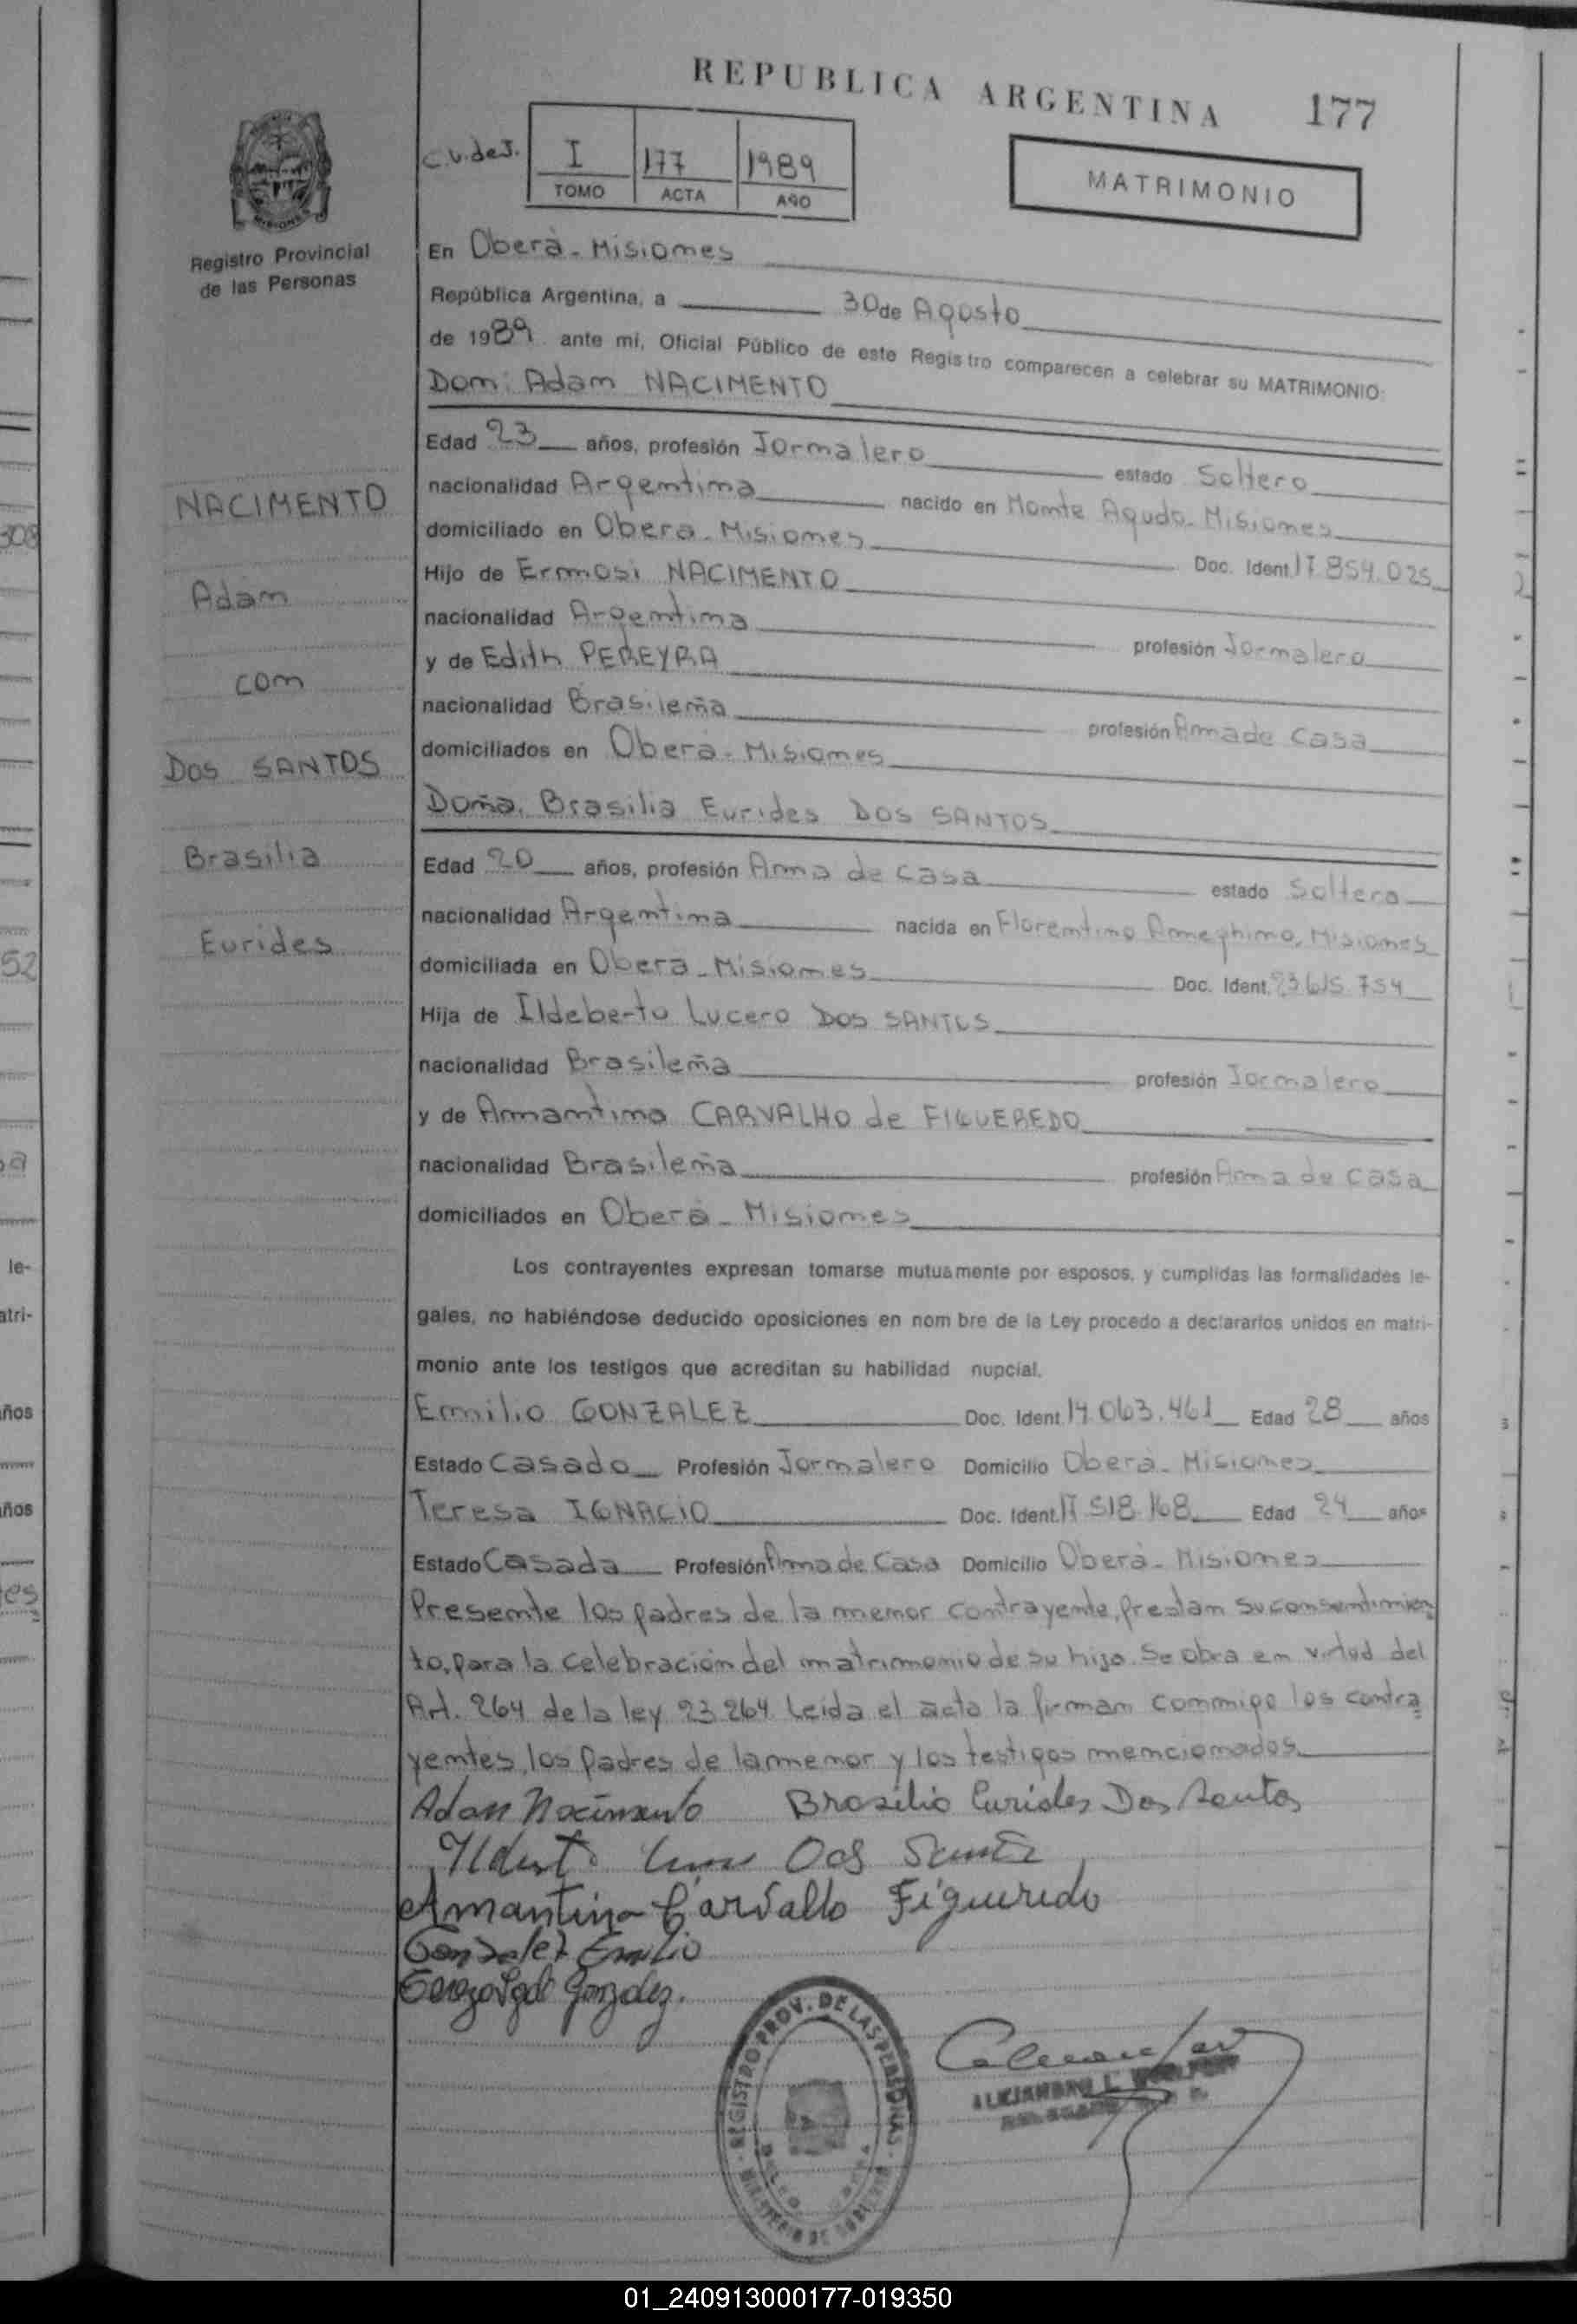 REPUBLICA ARGENTINA 177
C.V. de J. I 177 1989
TOMO ACTA AÑO
MATRIMONIO
MISIONES
Registro Provincial
de las Personas
En Oberá - Misiones
República Argentina, a 30 de Agosto
de 1989 ante mí, Oficial Público de este Registro comparecen a celebrar su MATRIMONIO:
Don: Adam NACIMENTO
Edad 23 años, profesión Jornalero estado Soltero
nacionalidad Argentina nacido en Monte Agudo - Misiones
domiciliado en Oberá - Misiones Doc. Ident. 17.854.025
Hijo de Ermosi NACIMENTO
nacionalidad Argentina profesión Jornalero
y de Edith PEREYRA
nacionalidad Brasileña profesión Ama de Casa
domiciliados en Oberá - Misiones
Doña. Brasilia Eurides DOS SANTOS
Edad 20 años, profesión Ama de Casa estado Soltera
nacionalidad Argentina nacida en Florentino Ameghino, Misiones
domiciliada en Oberá - Misiones Doc. Ident. 23.615.754
Hija de Ildeberto Lucero DOS SANTOS
nacionalidad Brasileña profesión Jornalero
y de Amantina CARVALHO de FIGUEREDO
nacionalidad Brasileña profesión Ama de Casa
domiciliados en Oberá - Misiones
NACIMENTO
Adam
con
DOS SANTOS
Brasilia
Eurides
Los contrayentes expresan tomarse mutuamente por esposos, y cumplidas las formalidades le-
gales, no habiéndose deducido oposiciones en nom bre de la Ley procedo a declararlos unidos en matri-
monio ante los testigos que acreditan su habilidad nupcial.
Emilio GONZALEZ Doc. Ident. 14.063.461 Edad 28 años
Estado Casado Profesión Jornalero Domicilio Oberá - Misiones
Teresa IGNACIO Doc. Ident. 17.518.168 Edad 24 años
Estado Casada Profesión Ama de Casa Domicilio Oberá - Misiones
Presente los padres de la menor contrayente, prestan su consentimien
to, para la celebración del matrimonio de su hija. Se obra en virtud del
Art. 264 de la ley 23.264. Leída el acta la firman conmigo los contra
yentes, los padres de la menor y los testigos mencionados.
Adan Nacimento Brasilia Eurides Dos Santos
Dos Santos
Amantina Carvallo Figueredo
Gonzalez Emilio
Gonzalez.
REGISTRO PROV. DE LAS PERSONAS
MINISTERIO DE GOBIERNO
ALEJANDRO L.
01_240913000177-019350